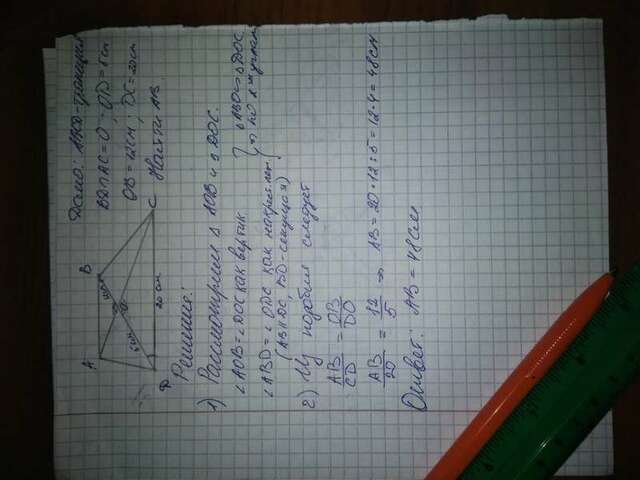 Дано: ABCD-трапеция
BD∩AC=O; OD=5см
OB=12см; DC=20см
Найти: AB
A
B
C
D
O
20 см
Решение:
1) Рассмотрим Δ AOB и Δ DOC.
∠AOB=∠DOC как вертик.
∠ABD=∠ODC как накрест леж.
(AB∥DC, BD-секущая)
ΔABO∾ΔDOC
по 2м углам
2) Из подобия следует
AB/CD = OB/DO
AB/20 = 12/5 ⇒ AB=20·12:5=12·4=48см
Ответ: AB=48см